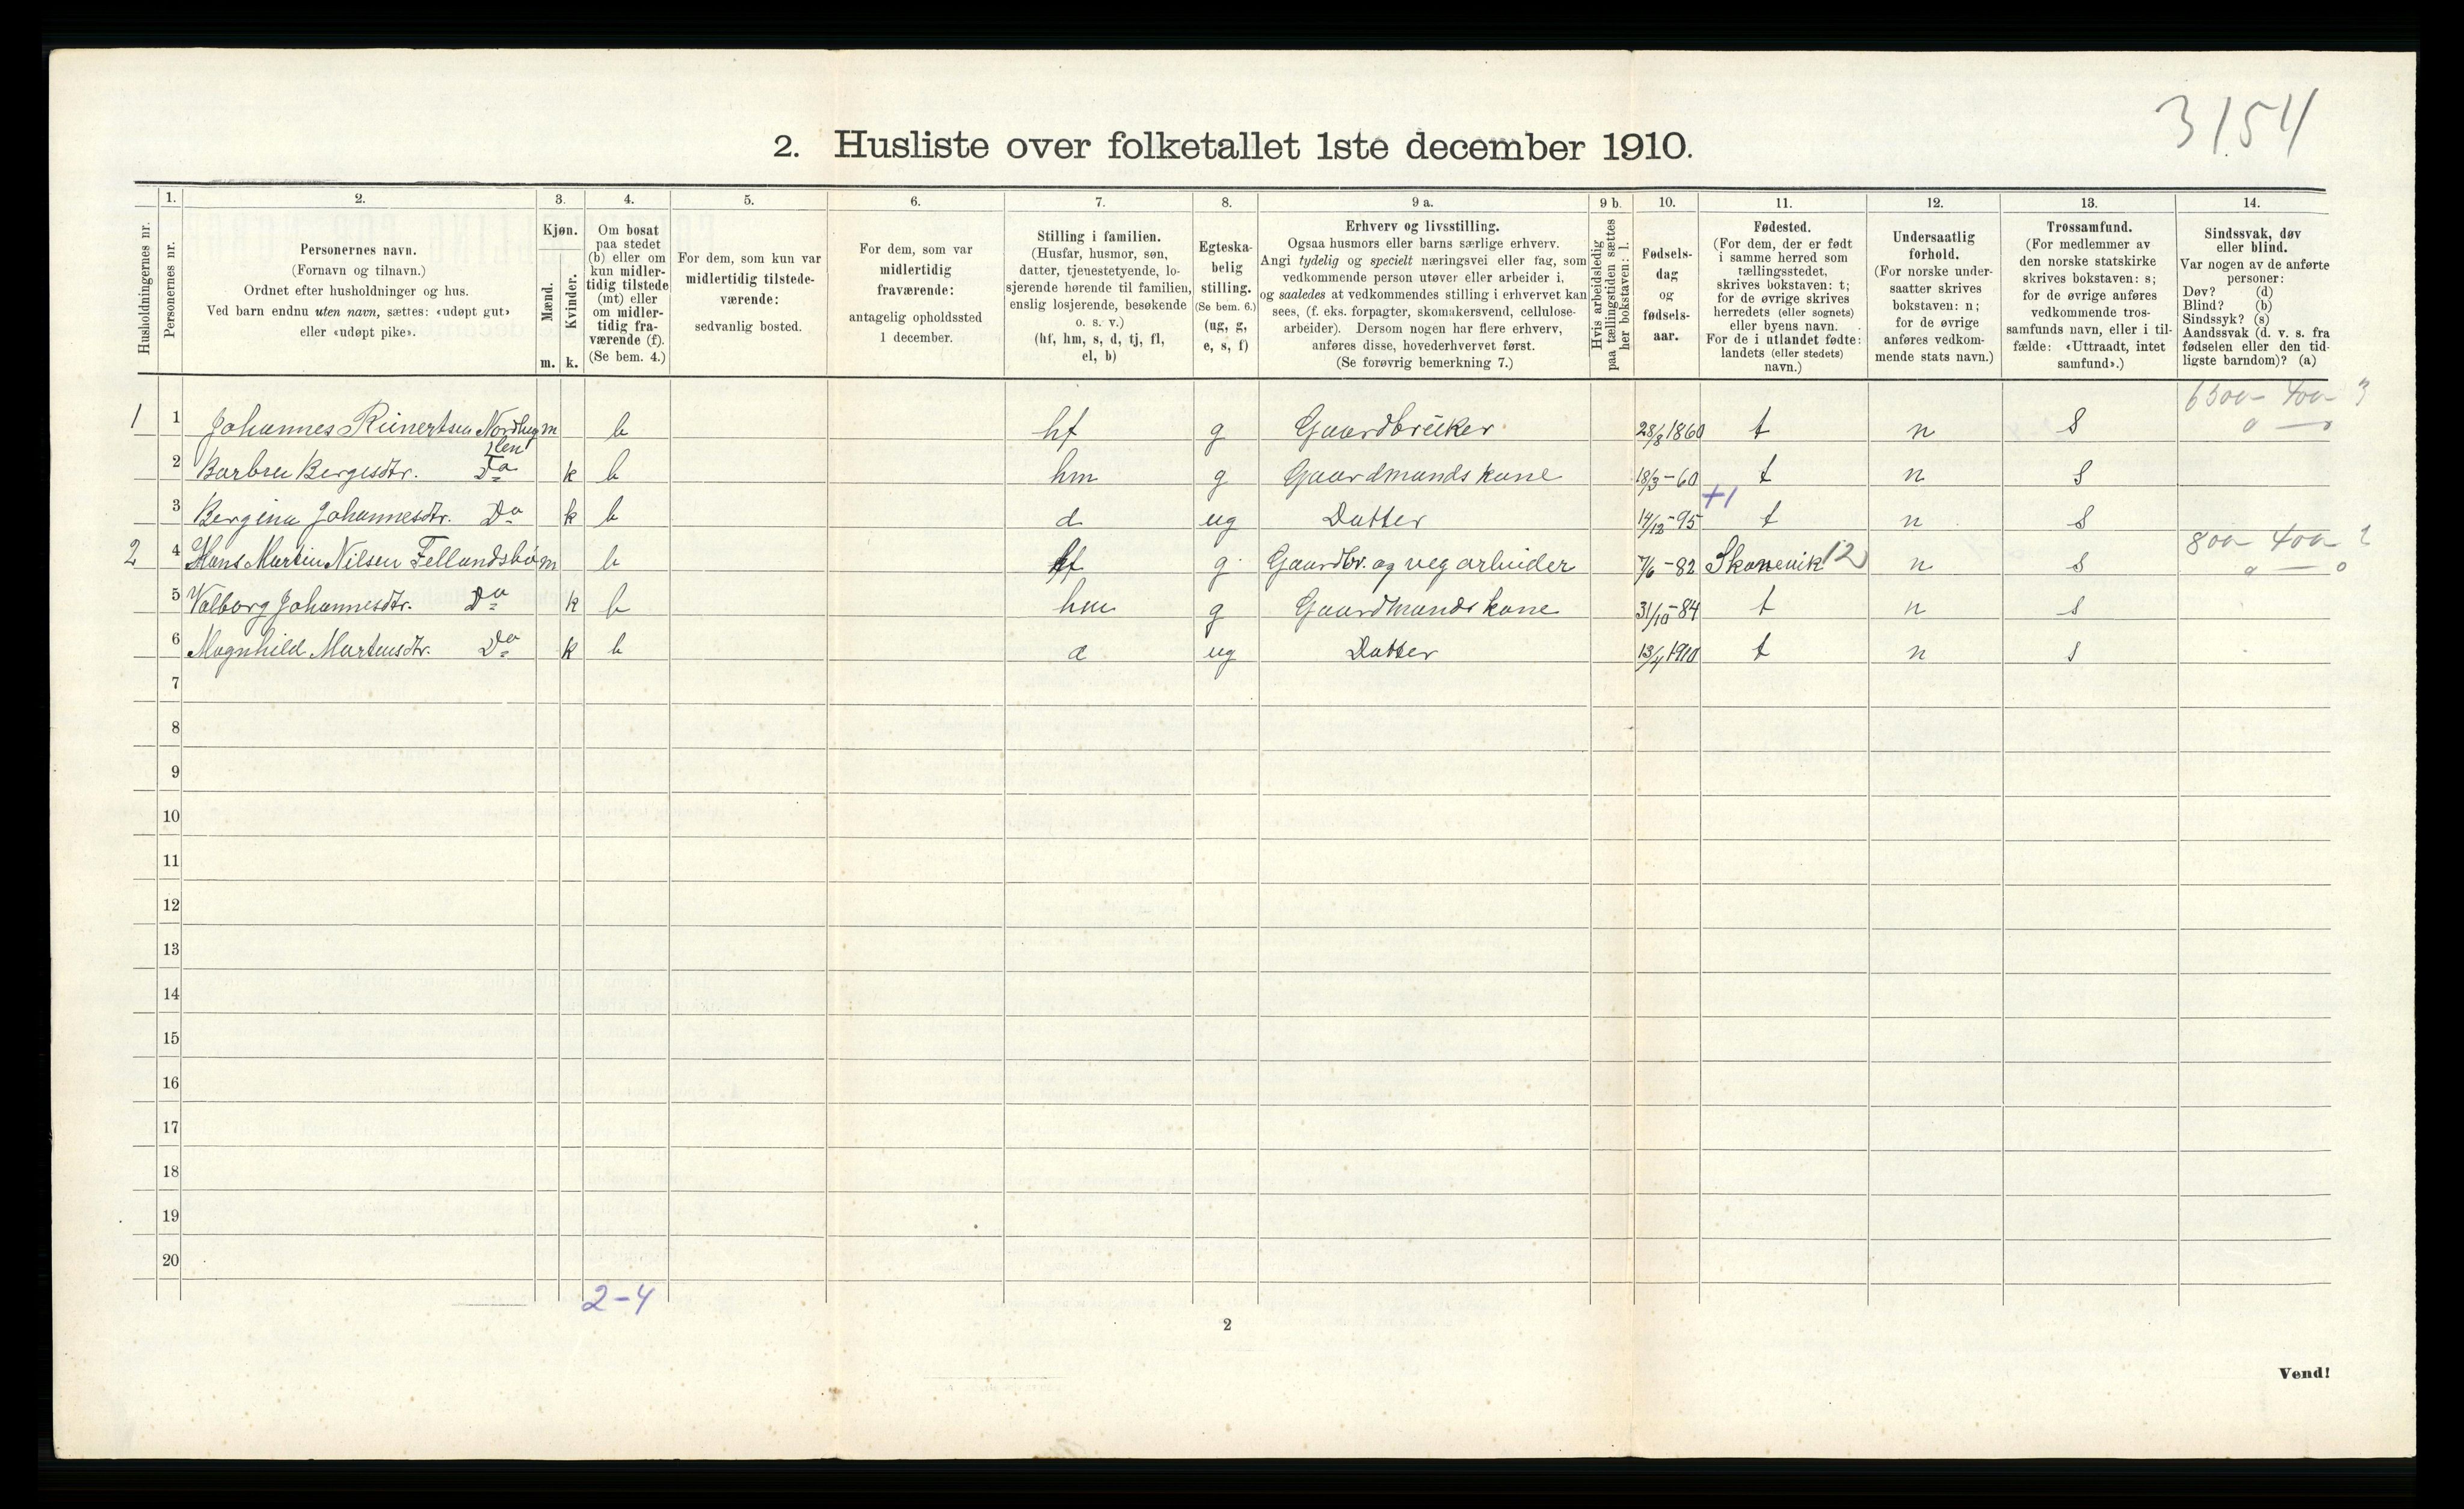 3154
2. Husliste over folketallet 1ste december 1910.
Husholdningernes nr.
1.
Personernes nr.
2.
Personernes navn.
(Fornavn og tilnavn.)
Ordnet efter husholdninger og hus.
Ved barn endnu uten navn, sættes: «udøpt gut»
eller «udøpt pike».
3.
Kjøn.
Mænd.
m.
Kvinder.
k.
4.
Om bosat
paa stedet
(b) eller om
kun midler-
tidig tilstede
(mt) eller
om midler-
tidig fra-
værende (f).
(Se bem. 4.)
5.
For dem, som kun var
midlertidig tilstede-
værende:
sedvanlig bosted.
6.
For dem, som var
midlertidig
fraværende:
antagelig opholdssted
1 december.
7.
Stilling i familien.
(Husfar, husmor, søn,
datter, tjenestetyende, lo-
sjerende hørende til familien,
enslig losjerende, besøkende
o. s. v.)
(hf, hm, s, d, tj, fl,
el, b)
8.
Egteska-
belig
stilling.
(Se bem. 6.)
(ug, g,
e, s, f)
9 a.
Erhverv og livsstilling.
Ogsaa husmors eller barns særlige erhverv.
Angi tydelig og specielt næringsvei eller fag, som
vedkommende person utøver eller arbeider i,
og saaledes at vedkommendes stilling i erhvervet kan
sees, (f. eks. forpagter, skomakersvend, cellulose-
arbeider). Dersom nogen har flere erhverv,
anføres disse, hovederhvervet først.
(Se forøvrig bemerkning 7.)
9 b.
Hvis arbeidsledig
paa tællingstiden sættes
her bokstaven: l.
10.
Fødsels-
dag
og
fødsels-
aar.
11.
Fødested.
(For dem, der er født
i samme herred som
tællingsstedet,
skrives bokstaven: t;
for de øvrige skrives
herredets (eller sognets)
eller byens navn.
For de i utlandet fødte:
landets (eller stedets)
navn.)
12.
Undersaatlig
forhold.
(For norske under-
saatter skrives
bokstaven: n;
for de øvrige
anføres vedkom-
mende stats navn.)
13.
Trossamfund.
(For medlemmer av
den norske statskirke
skrives bokstaven: s;
for de øvrige anføres
vedkommende tros-
samfunds navn, eller i til-
fælde: «Uttraadt, intet
samfund».)
14.
Sindssvak, døv
eller blind.
Var nogen av de anførte
personer:
Døv? (d)
Blind? (b)
Sindssyk? (s)
Aandssvak (d. v. s. fra
fødselen eller den tid-
ligste barndom)? (a)
1 1 Johannes Reinertsen Nordhug m b hf g Gaardbruker 28/8 1860 t n S
len
2 Barbru Bergesdtr. Do k b hm g Gaardmands kone 18/3-60 t n S
+1
3 Bergina Johannesdtr. Do k b d ug Datter 14/12-95 t n S
800 - 400 - 2
2 4 Hans Martin Nilsen Fellandsbø m b hf g Gaardbr. og veg arbeider 7/6-82 Skonevik 12 n S
5 Valborg Johannesdtr. Do k b hm g Gaardmands kone 31/10-84 t n s
6 Magnhild Martinsdtr. Do k b d ug Datter 13/4 1910 t n s
7
8
9
10
11
12
13
14
15
16
17
18
19
20
2-4
2
Vend!